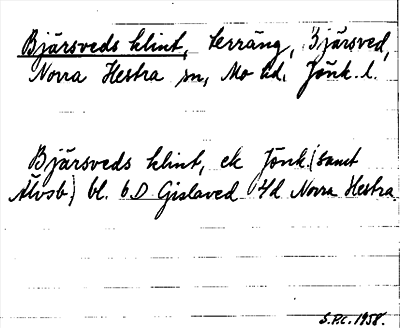 Bjärsveds klint, terräng, Bjärsved,
Norra Hestra sn, Mo hd. Jönk. l.
Bjärsveds klint, ek Jönk (samt
Älvsb) bl. 6D Gislaved 4d Norra Hestra.
S.P.C. 1958.